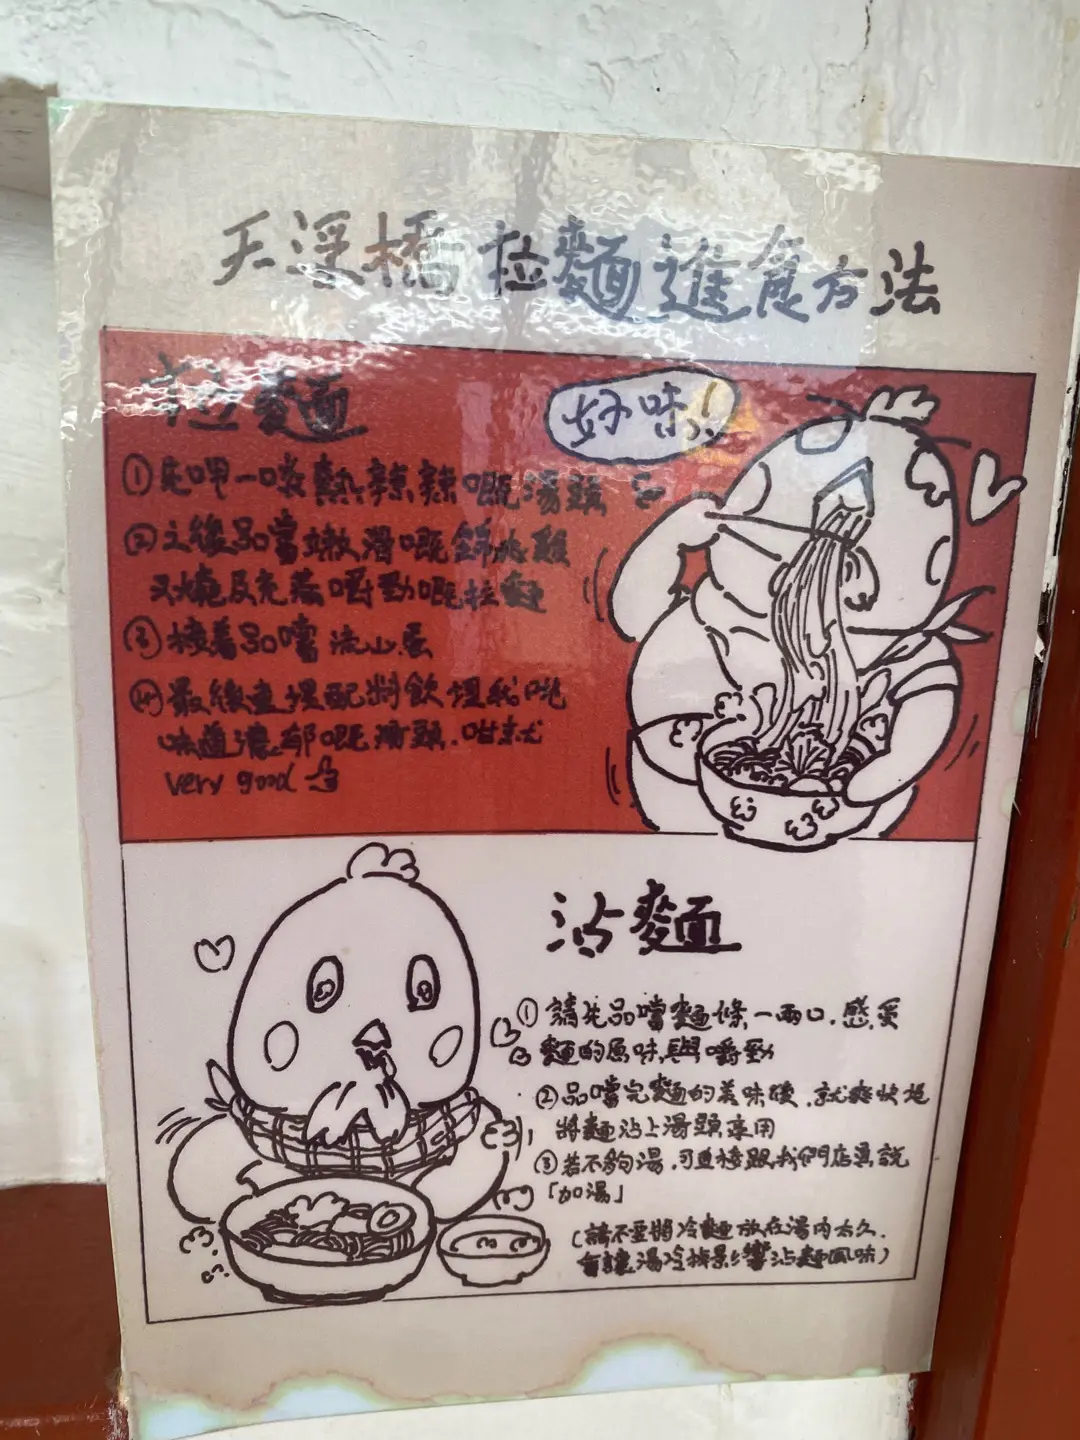 天浮橋拉麵進食方法
拉麵
好味!
①先呷一啖熱辣辣嘅湯頭
②之後品嚐嫩滑嘅錦兆雞
叉燒及充滿嚼勁嘅拉麵
③接著品嚐流心蛋
④最後連埋配料飲埋我哋
味道濃郁嘅湯頭．咁就
very good
沾麵
①請先品嚐麵條一兩口．感受
麵的原味與嚼勁
②品嚐完麵的美味後．就爽快地
將麵沾上湯頭享用
③若不夠湯．可直接跟我們店員說
「加湯」
(請不要將冷麵放在湯內太久．
會讓湯冷掉影響沾麵風味)